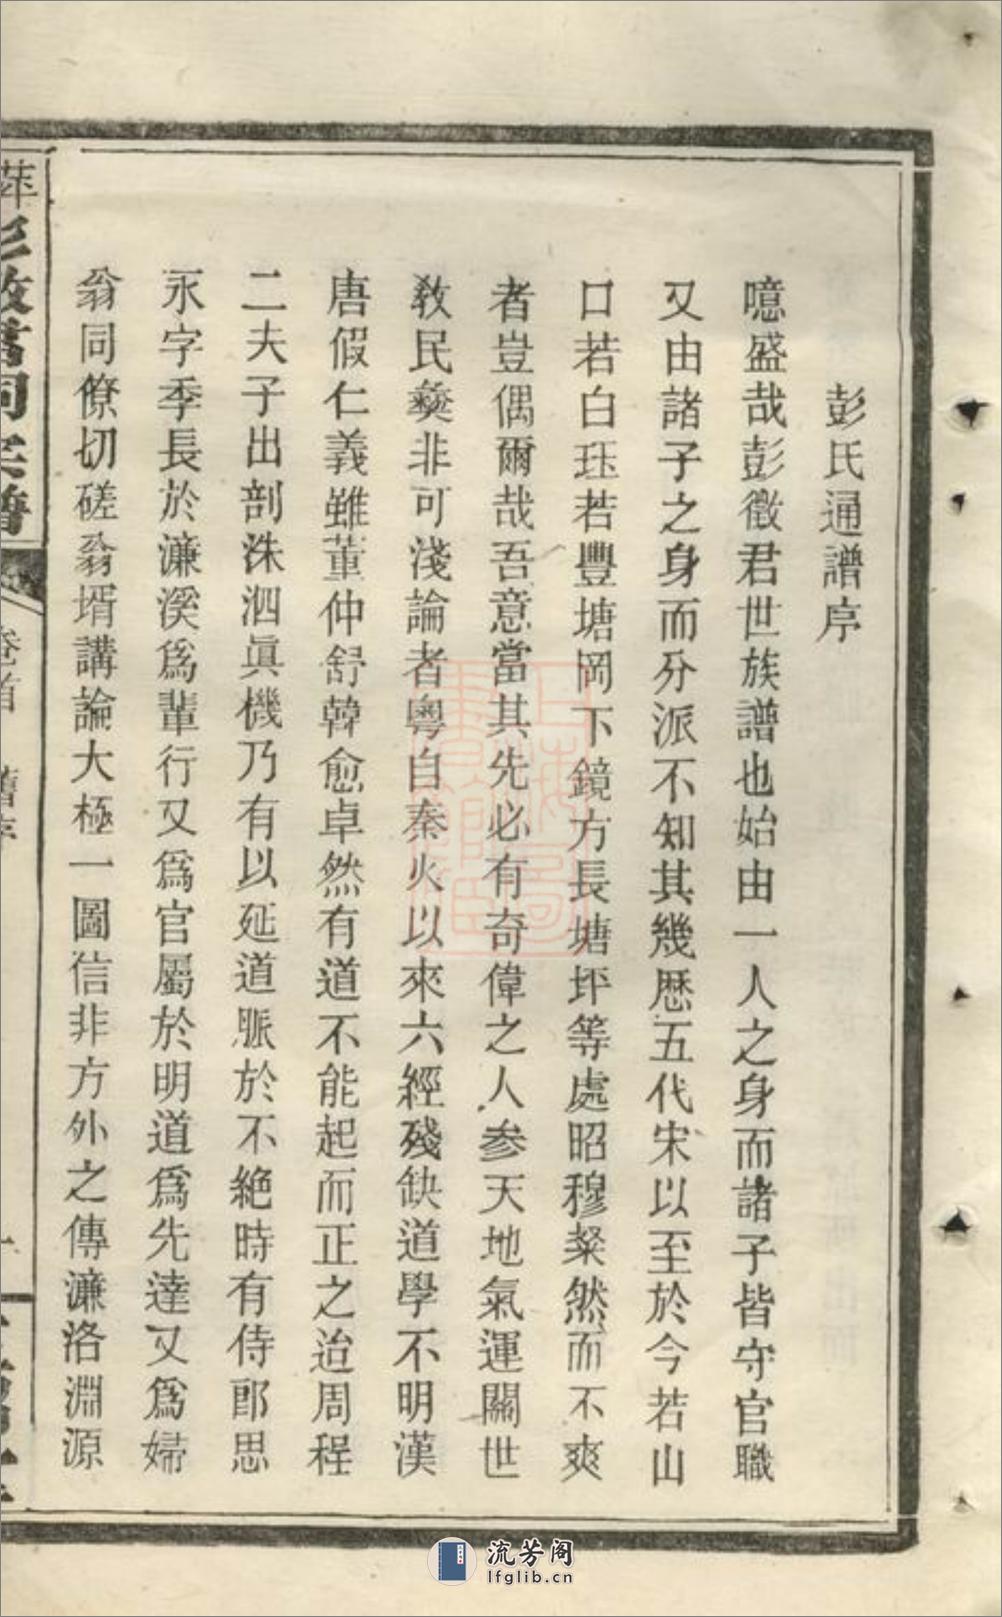 彭氏通譜序
噫盛哉彭徵君世族譜也始由一人之身而諸子皆守官職
又由諸子之身而分派不知其幾歷五代宋以至於今若山
口若白珏若豐塘岡下鏡方長塘坪等處昭穆粲然而不爽
者豈偶爾哉吾意當其先必有奇偉之人參天地氣運關世
敎民彝非可淺論者粵自秦火以來六經殘缺道學不明漢
唐假仁義雖董仲舒韓愈卓然有道不能起而正之迨周程
二夫子出剖洙泗眞機乃有以延道脈於不絶時有侍郎思
永字季長於濂溪爲輩行又爲官屬於明道爲先達又爲婦
翁同僚切磋翁壻講論大極一圖信非方外之傳濂洛淵源
流芳阁
lfglib.cn